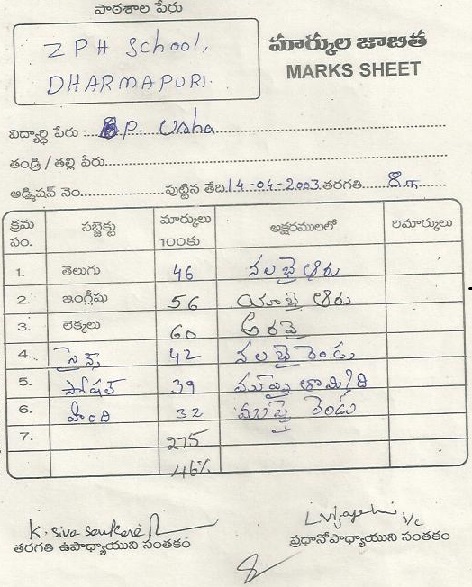 పాఠశాల పేరు
ZPH School,
DHARMAPURI.
మార్కుల జాబిత
MARKS SHEET
విద్యార్థి పేరు P Usha
తండ్రి / తల్లి పేరు
అడ్మిషన్ నెం. పుట్టిన తేది 14-04-2003 తరగతి 8
క్రమ సం. సబ్జెక్టు మార్కులు 100కు అక్షరములలో రిమార్కులు
1. తెలుగు 46 నలభై ఆరు
2. ఇంగ్లీషు 56 యాభై ఆరు
3. లెక్కలు 60 అరవై
4. సైన్స్ 42 నలభై రెండు
5. సోషల్ 39 ముప్పై తొమ్మిది
6. హింది 32 ముప్పై రెండు
7. 275
46%
K. Siva Sankara
తరగతి ఉపాధ్యాయుని సంతకం
ప్రధానోపాధ్యాయుని సంతకం